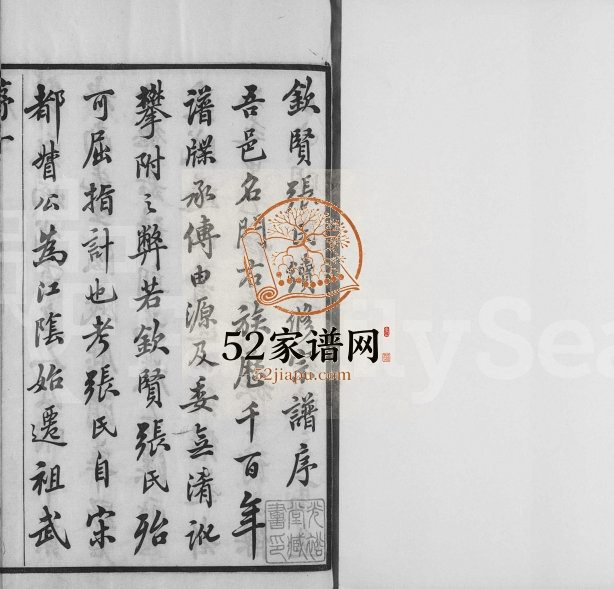 欽賢張氏續修宗譜序
吾邑名門右族歷千百年
譜牒承傳由源及委無淆訛
攀附之弊若欽賢張氏殆
可屈指計也考張氏自宋
都督公為江陰始遷祖武
52家谱网
52jiapu.com